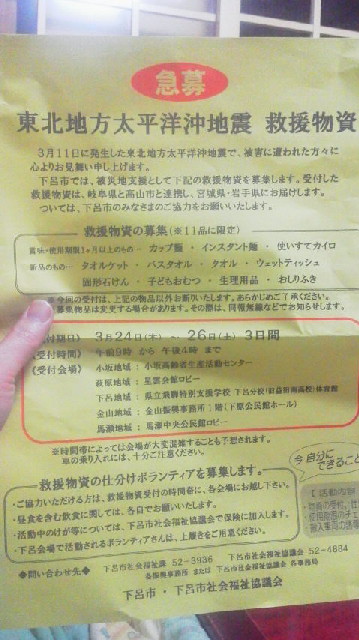 急募
東北地方太平洋沖地震 救援物資
3月11日に発生した東北地方太平洋沖地震で、被害に遭われた方々に
心よりお見舞い申し上げます。
下呂市では、被災地支援として下記の救援物資を募集します。受付した
救援物資は、岐阜県と高山市と連携し、宮城県・岩手県にお届けします。
ついては、下呂市のみなさまのご協力をお願いいたします。
救援物資の募集(※11品に限定)
賞味・使用期限1ヶ月以上のもの… カップ麺 ・ インスタント麺 ・ 使いすてカイロ
新品のもの… タオルケット ・ バスタオル ・ タオル ・ ウェットティッシュ
固形石けん ・ 子どもおむつ ・ 生理用品 ・ おしりふき
※今回の受付は、上記の物品以外お断りいたします。あらかじめご了承ください。
募集物品は変更する場合があります。その際は、同報無線などでお知らせします。
付期日) 3月24日(木) ~ 26日(土) 3日間
(受付時間) 午前9時 から 午後4時 まで
(受付会場) 小坂地域 : 小坂高齢者生産活動センター
萩原地域 : 星雲会館ロビー
下呂地域 : 県立飛騨特別支援学校 下呂分校(旧益田南高校)体育館
金山地域 : 金山振興事務所1階(下原公民館ホール)
馬瀬地域 : 馬瀬中央公民館ロビー
※時間帯によっては会場が大変混雑することも予想されます。
車の乗り入れには、十分ご注意ください。
救援物資の仕分けボランティアを募集します。
・ご協力いただける方は、救援物資受付の時間帯に、各会場にお越し下さい。
・昼食を含む飲食に関しては、各自でお願いいたします。
・活動中のけが等については、下呂市社会福祉協議会で保険に加入します。
・下呂会場で活動されるボランティアさんは、上履きをご用意ください。
今 自分に
できること
◆問い合わせ先◆ 下呂市社会福祉課 52-3936 下呂市社会福祉協議会 52-4884
各振興事務所 または 下呂市社会福祉協議会 各事務局
下呂市 ・ 下呂市社会福祉協議会